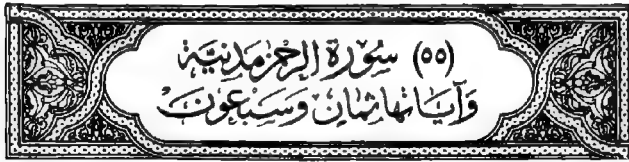 (٥٥) سُورَة الرحمن مَدنيَّة
وَآيَاتهَا ثمَان وَسَبْعُونَ